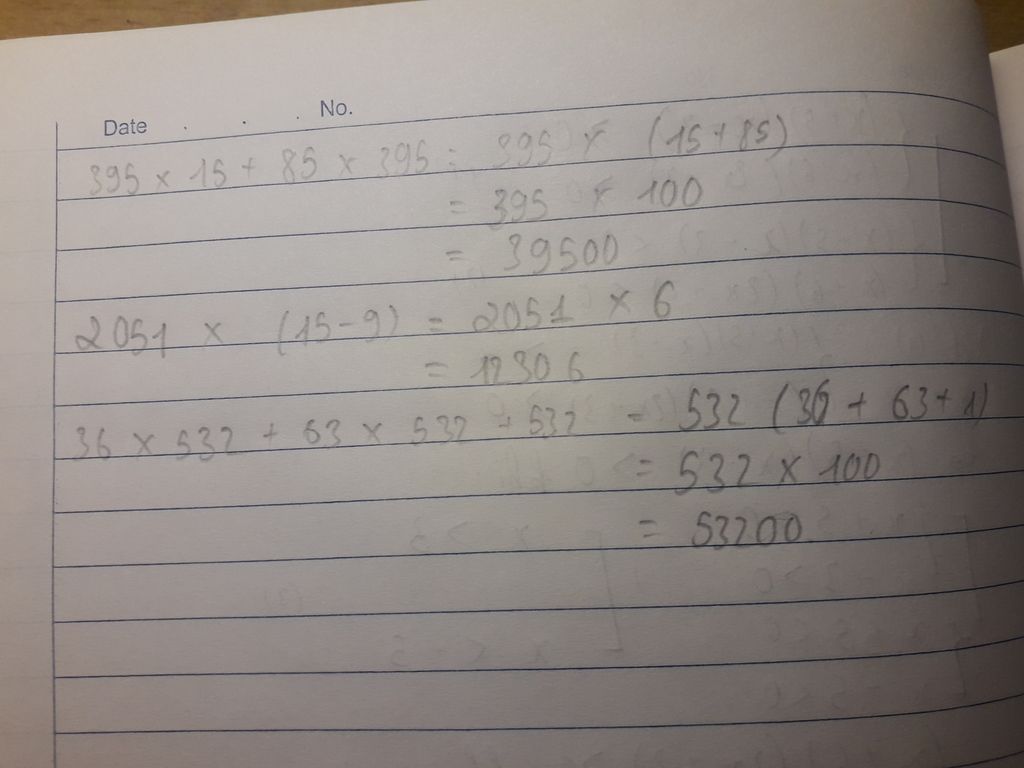 Date . . . No.
395 × 15 + 85 × 395 = 395 × (15 + 85)
= 395 × 100
= 39500
2051 × (15 - 9) = 2051 × 6
= 12306
36 × 532 + 63 × 532 + 532 = 532 (36 + 63 + 1)
= 532 × 100
= 53200